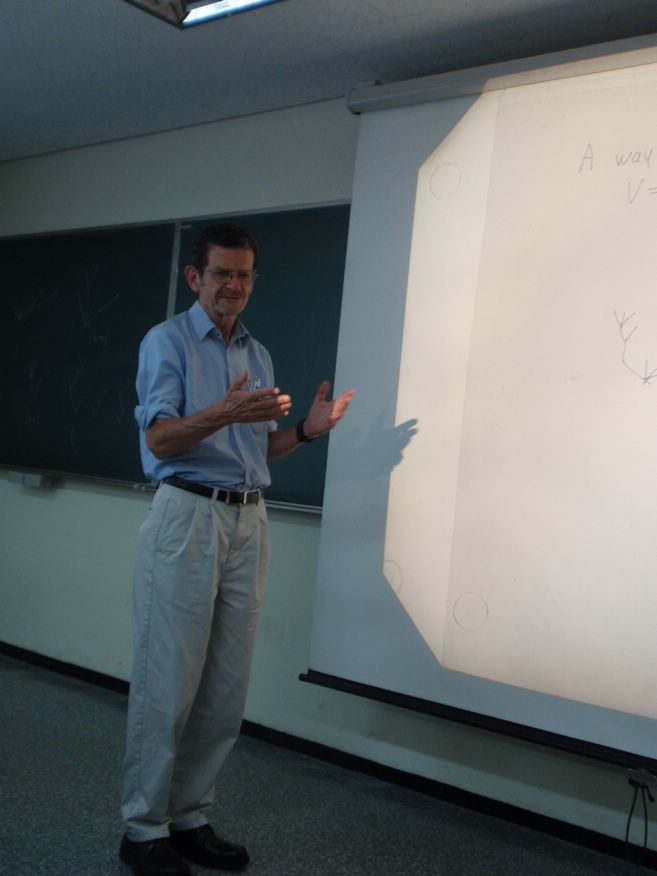 A way
V =